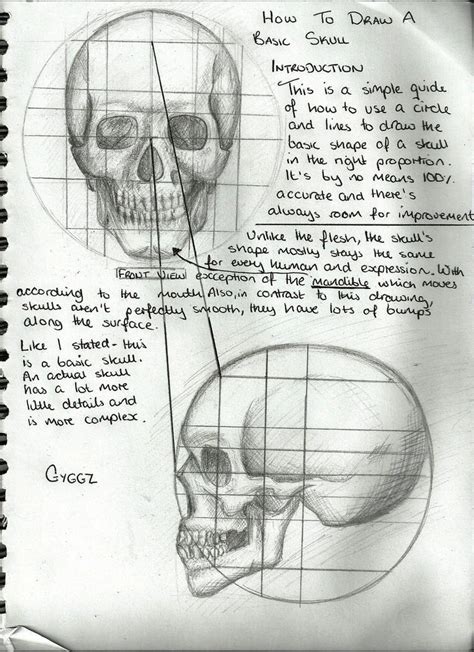 How To Draw A
Basic Skull
Introduction
This is a simple guide
of how to use a circle
and lines to draw the
basic shape of a skull
in the right proportion.
It's by no means 100%
accurate and there's
always room for improvement
Unlike the flesh, the skull's
shape mostly stays the same
for every human and expression. With
Front View
exception of the mandible which moves
according to the mouth. Also, in contrast to this drawing,
skulls aren't perfectly smooth, they have lots of bumps
along the surface.
Like I stated - this
is a basic skull.
An actual skull
has a lot more
little details and
is more complex.
Gyggz